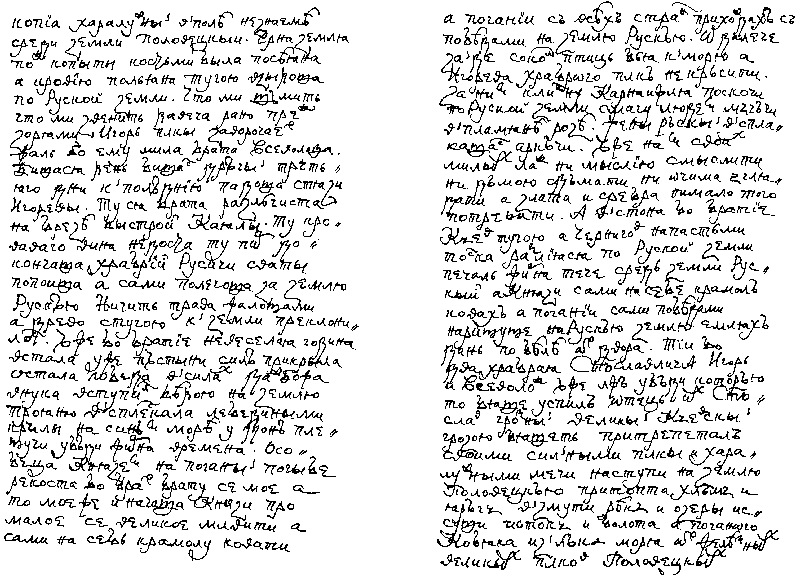 копїа харалужныи в' полѣ незнаемѣ
среди земли Половецкыи. Чрна земля
подъ копыты костьми была посѣяна
а кровїю польяна тугою взыдоша
по Руской земли. Что ми шумить
что ми звенить давеча рано предъ
зорями. Игорь плкы заворочаетъ
жаль бо ему мила брата Всеволода.
Бишася день бишася другыи третья„
го дни к' полуднїю падоша стязи
Игоревы. Ту ся брата разлучиста
на брезѣ быстрой Каялы. Ту кро„
ваваго вина недоста ту пиръ до„
кончаша храбрїи Русичи сваты
попоиша а сами полегоша за землю
Рускую Ничить трава жалощами
а древо стугою к' земли преклони„
лось. Уже бо братїе невеселая година
встала уже пустыни силу прикрыла
Встала обида в' силахъ Дажбожа
внука вступилъ дѣвою на землю
Трояню в'сплескала лебедиными
крылы на синѣмъ морѣ у Дону пле„
щучи убуди жирня времена. Усо„
бица Княземъ на поганыя погыбе
рекоста бо братъ брату се мое а
то мое же и начаша Князи про
малое се великое млвити а
сами на себѣ крамолу ковати
а поганїи съ всѣхъ странъ прихождахъ съ
побѣдами на землю Рускую. О далече
заиде соколъ птиць бья к'морю а
Игорева храбраго плку не крѣсити.
За нимъ кликну Карна и Жля поскочи
по Руской земли смагу людемъ мычючи
в'пламянѣ розѣ. Жены рускыя в'спла„
кашась аркучи. Уже намъ своихъ
милыхъ ладъ ни мыслїю смыслити
ни думою сдумати ни очима сгля„
дати а злата и сребра ни мало того
потрепати. А в'стона бо братїе
Кїевъ тугою а Черниговъ напастьми
тоска разлїяся по Руской земли
печаль жирна тече средь земли Рус„
кый а Князи сами на себе крамолу
коваху а поганїи сами побѣдами
нарищуще на Рускую землю емляху
дань по бѣлѣ отъ двора. Тїи бо
два храбрая Святославличя Игорь
и Всеволодъ уже лжу убуди которую
то бяше успилъ отецъ ихъ Свято„
славъ грозныи великыи Кїевскыи
грозою бяшеть притрепеталъ
своими сильными плкы и хара„
лужными мечи наступи на землю
Половецкую притопта хлъмы и
яругы взмути рѣкы и озеры ис„
суши потокы и болота а поганого
Кобяка изъ луку моря отъ желѣзныхъ
великыхъ плковъ Половецкыхъ